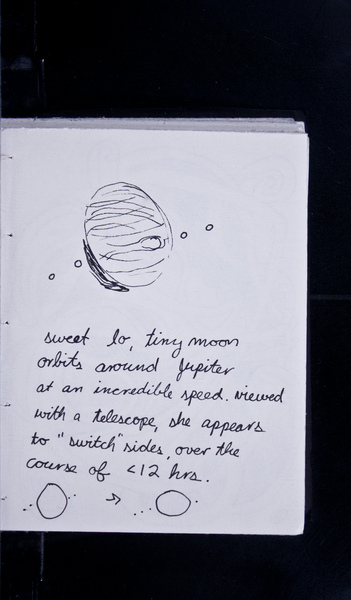 sweet Io, tiny moon
orbits around Jupiter
at an incredible speed. viewed
with a telescope, she appears
to "switch" sides, over the
course of <12 hrs.